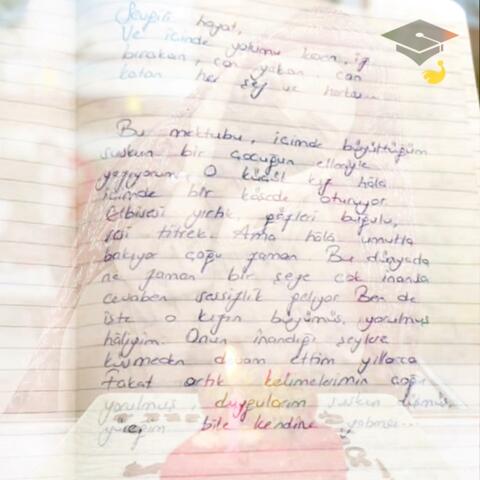 Sevgili hayat,
Ve içinde yolumu kesen, iz
bırakan, can yakan, can
katan her şey ve herkes...
Bu mektubu, içimde büyüttüğüm
suskun bir çocuğun elleriyle
yazıyorum. O küçük kız hâlâ
içimde bir köşede oturuyor.
Elbisesi yırtık, gözleri buğulu,
sesi titrek. Ama hâlâ umutla
bakıyor çoğu zaman. Bu dünyada
ne zaman bir şeye çok inansa
cevaben sessizlik geliyor. Ben de
işte o kızın büyümüş, yorulmuş
hâliyim. Onun inandığı şeylere
küsmeden devam ettim yıllarca
Fakat artık kelimelerimin çoğu
yorulmuş, duygularım suskun düşmüş,
yüreğim bile kendine yabancı...